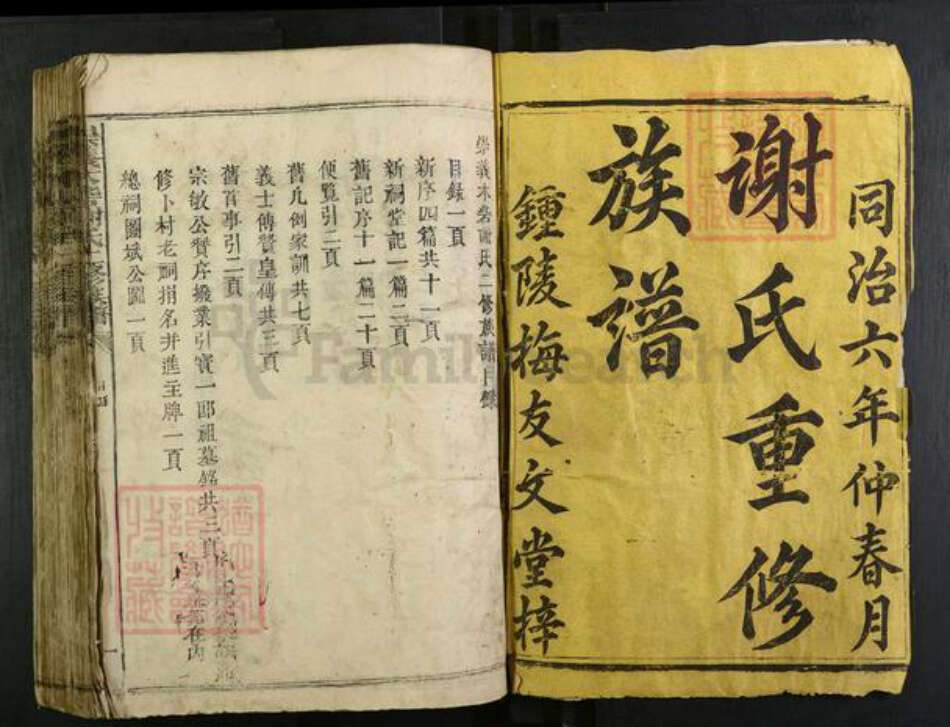 同治六年仲春月
謝氏重修
族譜
鍾陵梅友文堂梓
崇義木梓謝氏二修族譜目錄
目錄一頁
新序四篇共十一頁
新祠堂記一篇二頁
舊記序十一篇二十頁
便覽引二頁
舊凡例家訓共七頁
義士傳贊皇傳共三頁
舊首事引二頁
宗敏公贊序撥業引實一郎祖墓銘共三頁
修卜村老祠捐名并進主牌一頁
總祠圖斌公圖一頁
FamilySearch